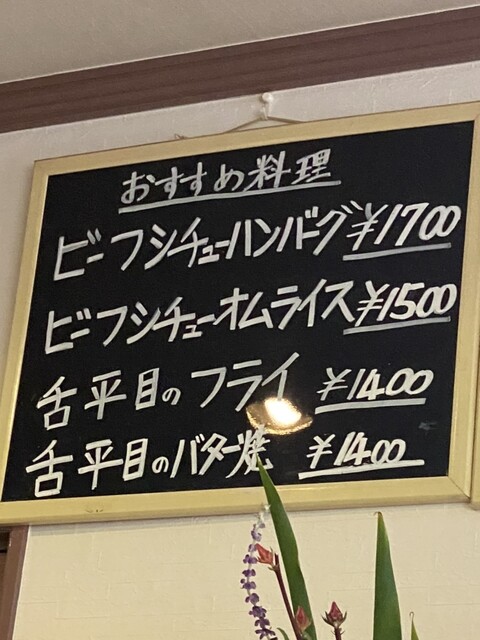 おすすめ料理
ビーフシチューハンバーグ ¥1700
ビーフシチューオムライス ¥1500
舌平目のフライ ¥1400
舌平目のバター焼 ¥1400